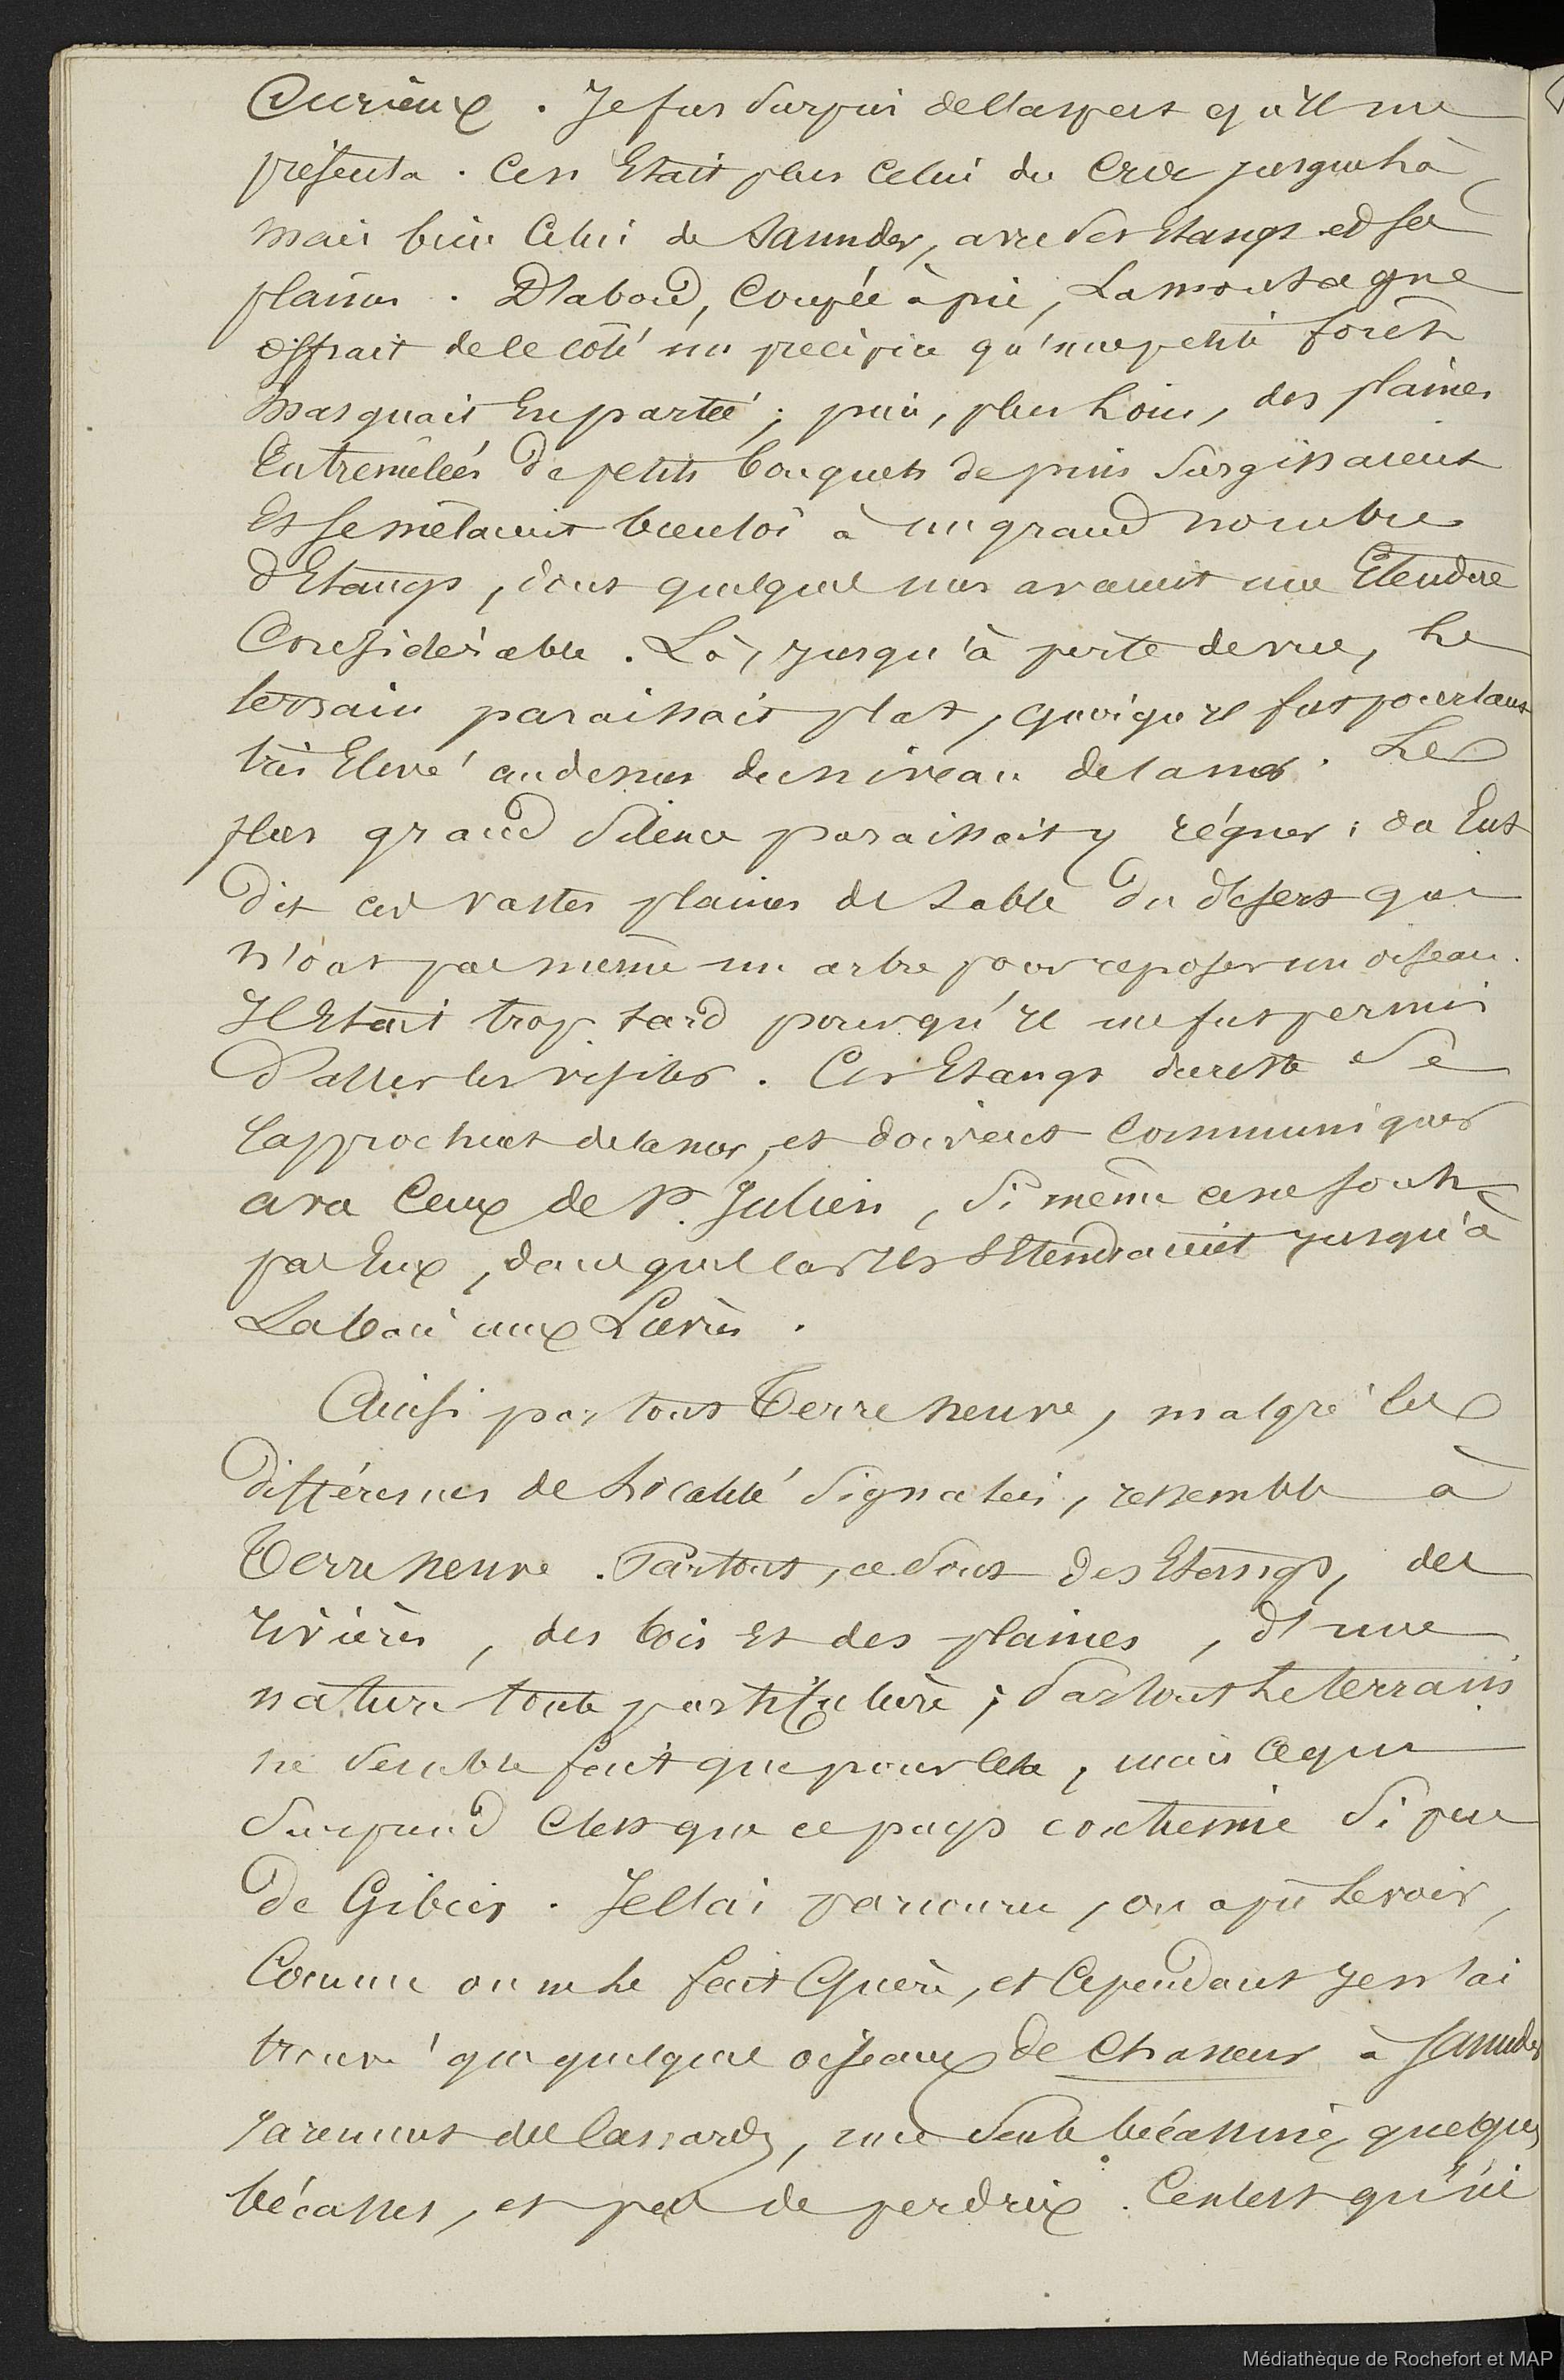 Curieux. Je fus surpris de l'aspect qu'il me
présenta. Ce n'était plus celui du Croc jusque là
mais bien celui de Saunders, avec ses Etangs et ses
plaines. D'abord, coupée à pic, La montagne
offrait de ce côté un précipice qu'une petite forêt
masquait en partie; puis, plus loin, des plaines
Entremêlées de petits bouquets de pins surgissaient
Et se mêlaient bientôt à un grand nombre
d'Etangs, dont quelques uns avaient une Etendue
Considérable. Là, jusqu'à perte de vue, le
terrain paraissait plat, quoiqu'il fut pourtant
très Elevé au dessus du niveau de la mer. Le
plus grand silence paraissait y régner: on Eut
dit ces vastes plaines de sable du désert qui
n'ont pas même un arbre pour reposer un oiseau.
Il Etait trop tard pour qu'il me fut permis
d'aller les visiter. Ces Etangs du reste se
rapprochent de la mer, et doivent communiquer
avec ceux de St. Julien, si même ce ne sont
pas Eux, dans quel cas ils s'Etendraient jusqu'à
La baie aux Lièvres.
Ainsi partout Terre neuve, malgré les
différences de Localité signalées, ressemble à
Terre neuve. Partout, ce sont des Etangs, des
rivières, des bois Et des plaines, d'une
nature toute particulière; Partout le terrain
ne semble fait que pour cela, mais ce qui
surprend c'est que ce pays contienne si peu
de Gibier. Je l'ai parcouru, on a pu le voir,
Comme on ne le fait Guère, et Cependant je n'ai
trouvé que quelques oiseaux de Chasseur à Saunders
rarement des Canards, une seule bécassine, quelques
bécasses, et peu de perdrix. Ce n'est qu'ici